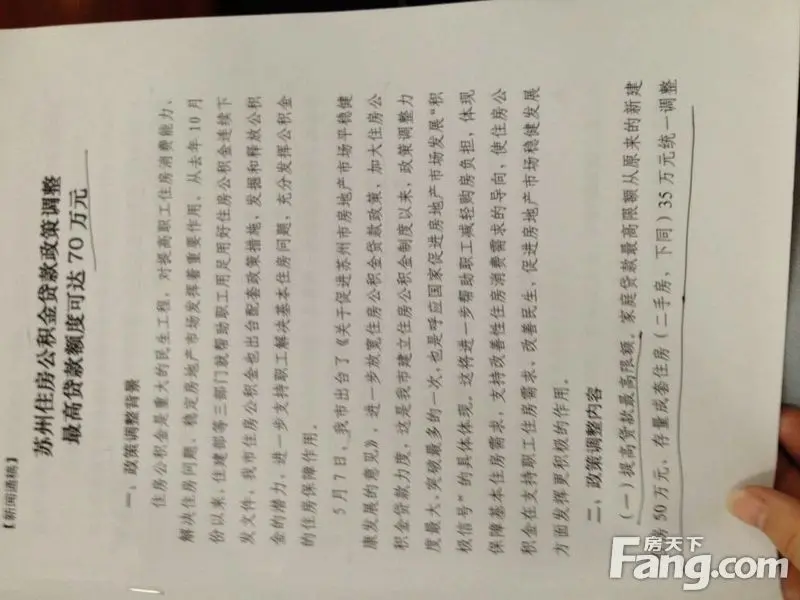 【新闻通稿】
苏州住房公积金贷款政策调整
最高贷款额度可达 70 万元
一、政策调整背景
住房公积金是重大的民生工程，对提高职工住房消费能力、
解决住房问题、稳定房地产市场发挥着重要作用。从去年 10 月
份以来，住建部等三部门就帮助职工用足用好住房公积金连续下
发文件，我市住房公积金也出台配套政策措施，发掘和释放公积
金的潜力，进一步支持职工解决基本住房问题，充分发挥公积金
的住房保障作用。
5 月 7 日，我市出台了《关于促进苏州市房地产市场平稳健
康发展的意见》，进一步放宽住房公积金贷款政策，加大住房公
积金贷款力度，这是我市建立住房公积金制度以来，政策调整力
度最大、突破最多的一次，也是呼应国家促进房地产市场发展“积
极信号”的具体体现。这将进一步帮助职工减轻购房负担，体现
保障基本住房需求，支持改善性住房消费需求的导向，使住房公
积金在支持职工住房需求、改善民生，促进房地产市场稳健发展
方面发挥更积极的作用。
二、政策调整内容
（一）提高贷款最高限额。家庭贷款最高限额从原来的新建
房 50 万元、存量成套住房（二手房，下同）35 万元统一调整
房天下
Fang.com